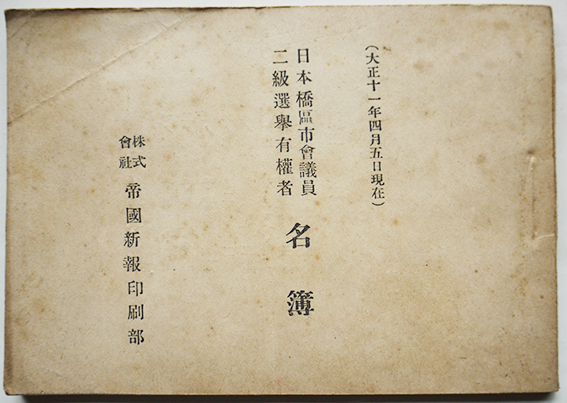 (大正十一年四月五日現在)
日本橋區市會議員
二級選擧有權者
名簿
株式會社
帝國新報印刷部